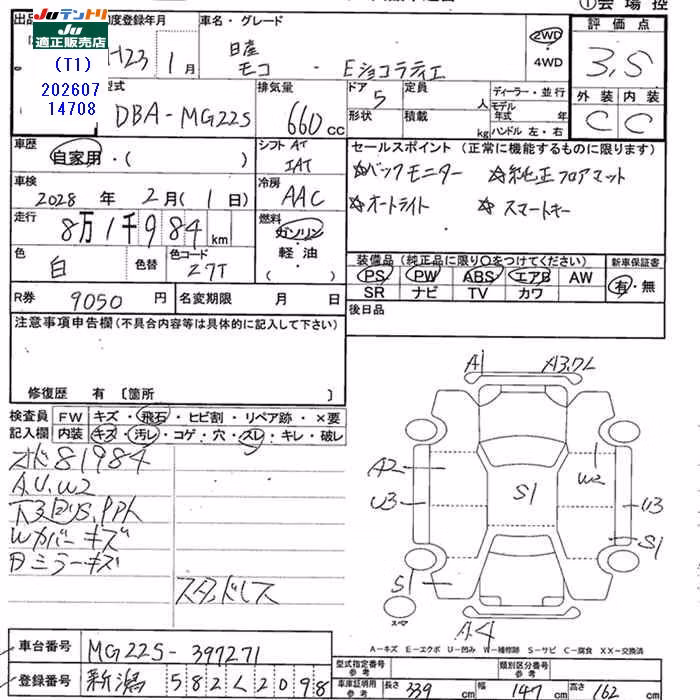 ①会場控
Juテントリ
Ju適正販売店
(T1)
202607
14708
初度登録年月
H23年1月
車名・グレード
日産
モコ・Eショコラティエ
2WD
4WD
評価点
3,5
外装 内装
C C
型式
DBA-MG22S
排気量
660cc
ドア 5
形状
定員 人
積載 kg
ディーラー・並行
モデル年式 年
ハンドル 左・右
車歴
自家用・( )
車検
2028年2月(1日)
走行
8万1千984km
色 白
色替
色コード Z7T
シフト AT
IAT
冷房
AAC
燃料
ガソリン
・
軽油
( )
セールスポイント(正常に機能するものに限ります)
☆バックモニター ☆純正フロアマット
☆オートライト ☆スマートキー
装備品(純正品に限り〇をつけてください)
PS PW ABS エアB AW
SR ナビ TV カワ
新車保証書
有・無
R券 9050円
名変期限 月 日
後日品
注意事項申告欄(不具合内容等は具体的に記入して下さい)
修復歴 有〔箇所 〕
検査員記入欄
FW キズ・飛石・ヒビ割・リペア跡・×要
内装 キズ・汚レ・コゲ・穴・スレ・キレ・破レ
オド81984
A.U.W2
Wカバーキズ
ミラーキズ
スタッドレス
A1
A3
A2
U3
S1
W2
U3
S1
S1
A4
スペア
A-キズ E-エクボ U-凹み W-補修跡 S-サビ C-腐食 XX-交換済
車台番号 MG22S-397271
登録番号 新潟582く2098
型式指定番号
参考
類別区分番号
参考
車庫証明用
参考
長さ 339cm
幅 147cm
高さ 162cm